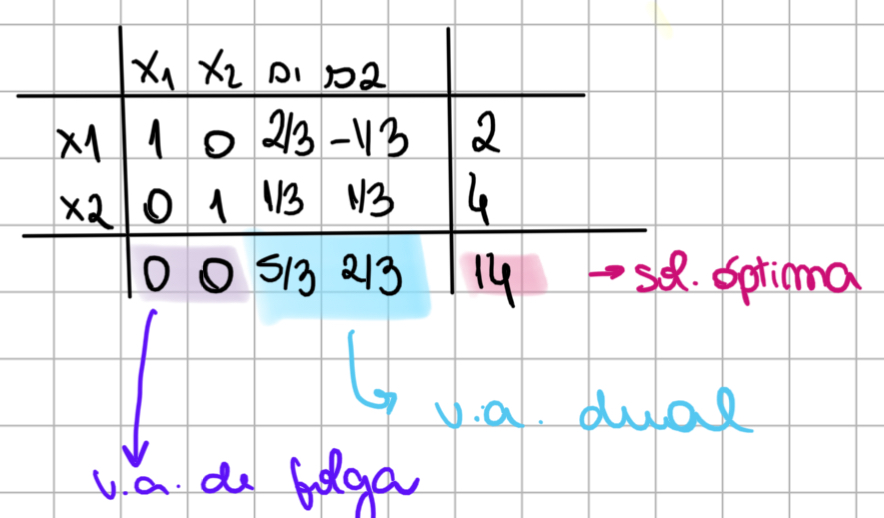 x1 x2 s1 s2
x1 1 0 2/3 -1/3 2
x2 0 1 1/3 1/3 4
0 0 5/3 2/3 14 → sol. óptima
v.a. dual
v.a. de folga